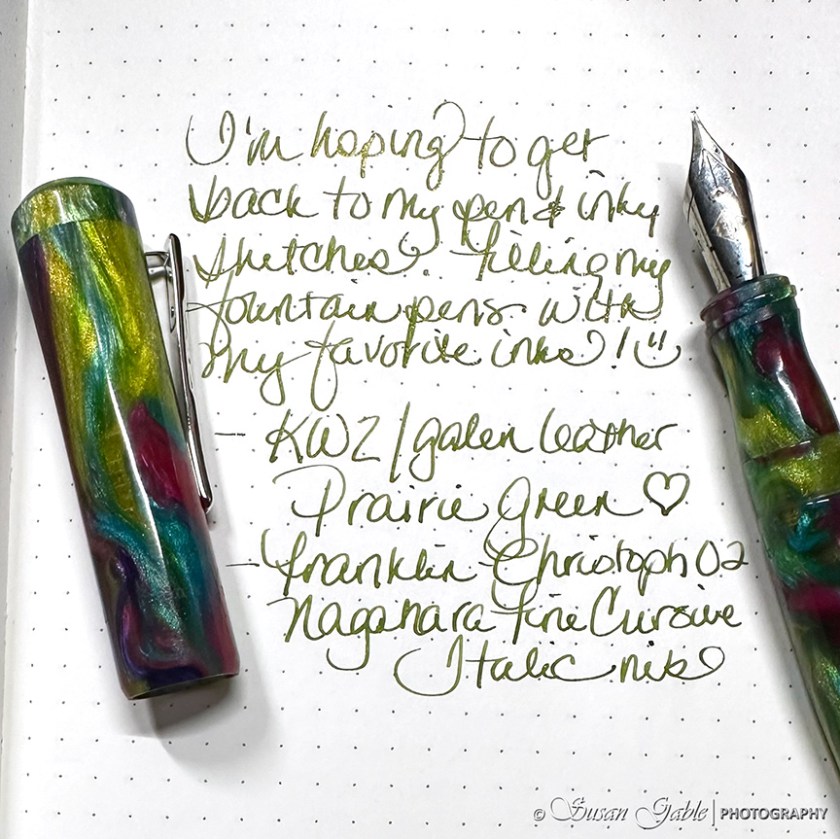 I'm hoping to get
back to my pen & inky
sketches. Filling my
fountain pens with
my favorite inks! :)
- KWZ/galen leather
Prairie Green ♡
- Franklin-Christoph 02
Nagahara Fine Cursive
Italic nib
© Susan Gable | PHOTOGRAPHY